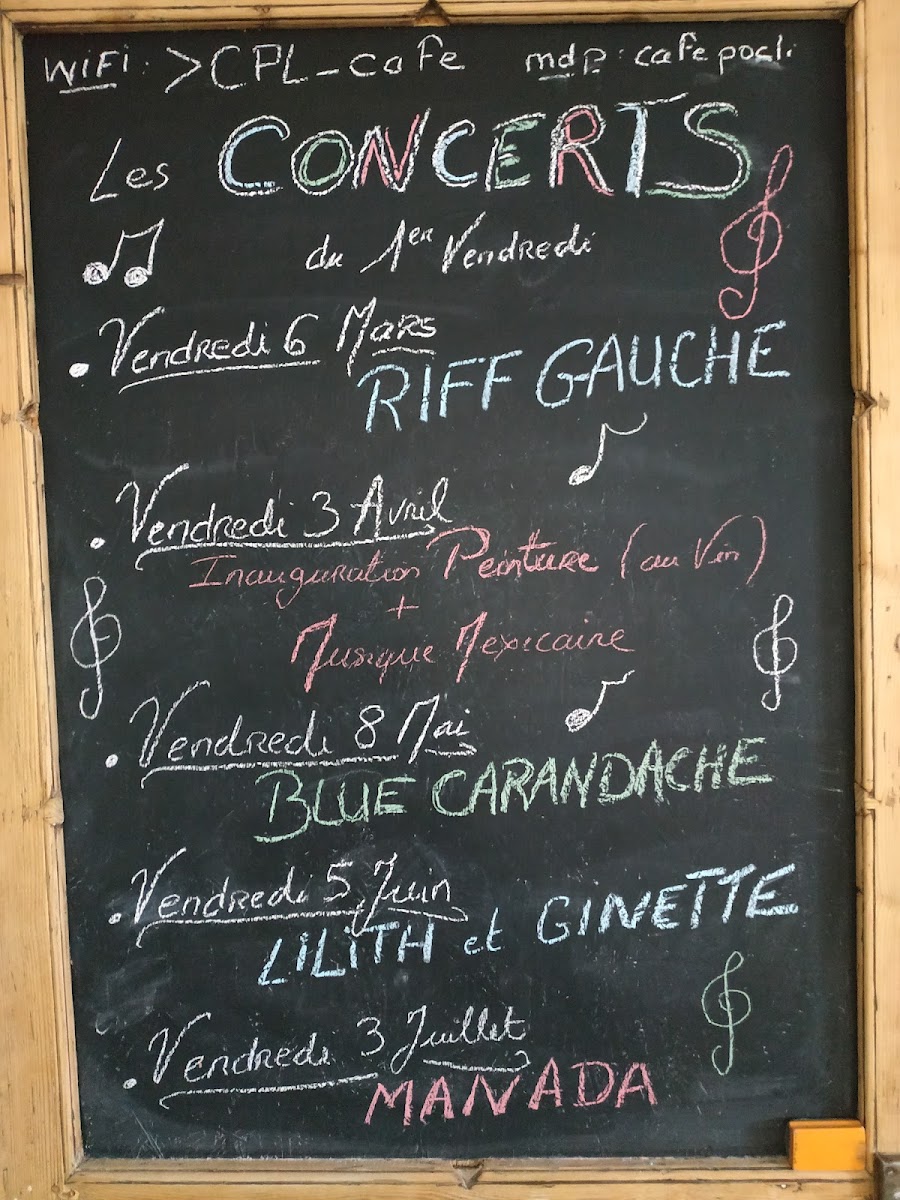 WiFi : >CPL_cafe mdp : cafe pocli
Les CONCERTS
du 1er Vendredi
• Vendredi 6 Mars
RIFF GAUCHE
• Vendredi 3 Avril
Inauguration Peinture (au Vin)
+
Musique Mexicaine
• Vendredi 8 Mai
BLUE CARANDACHE
• Vendredi 5 Juin
LILITH et GINETTE
• Vendredi 3 Juillet
MANADA